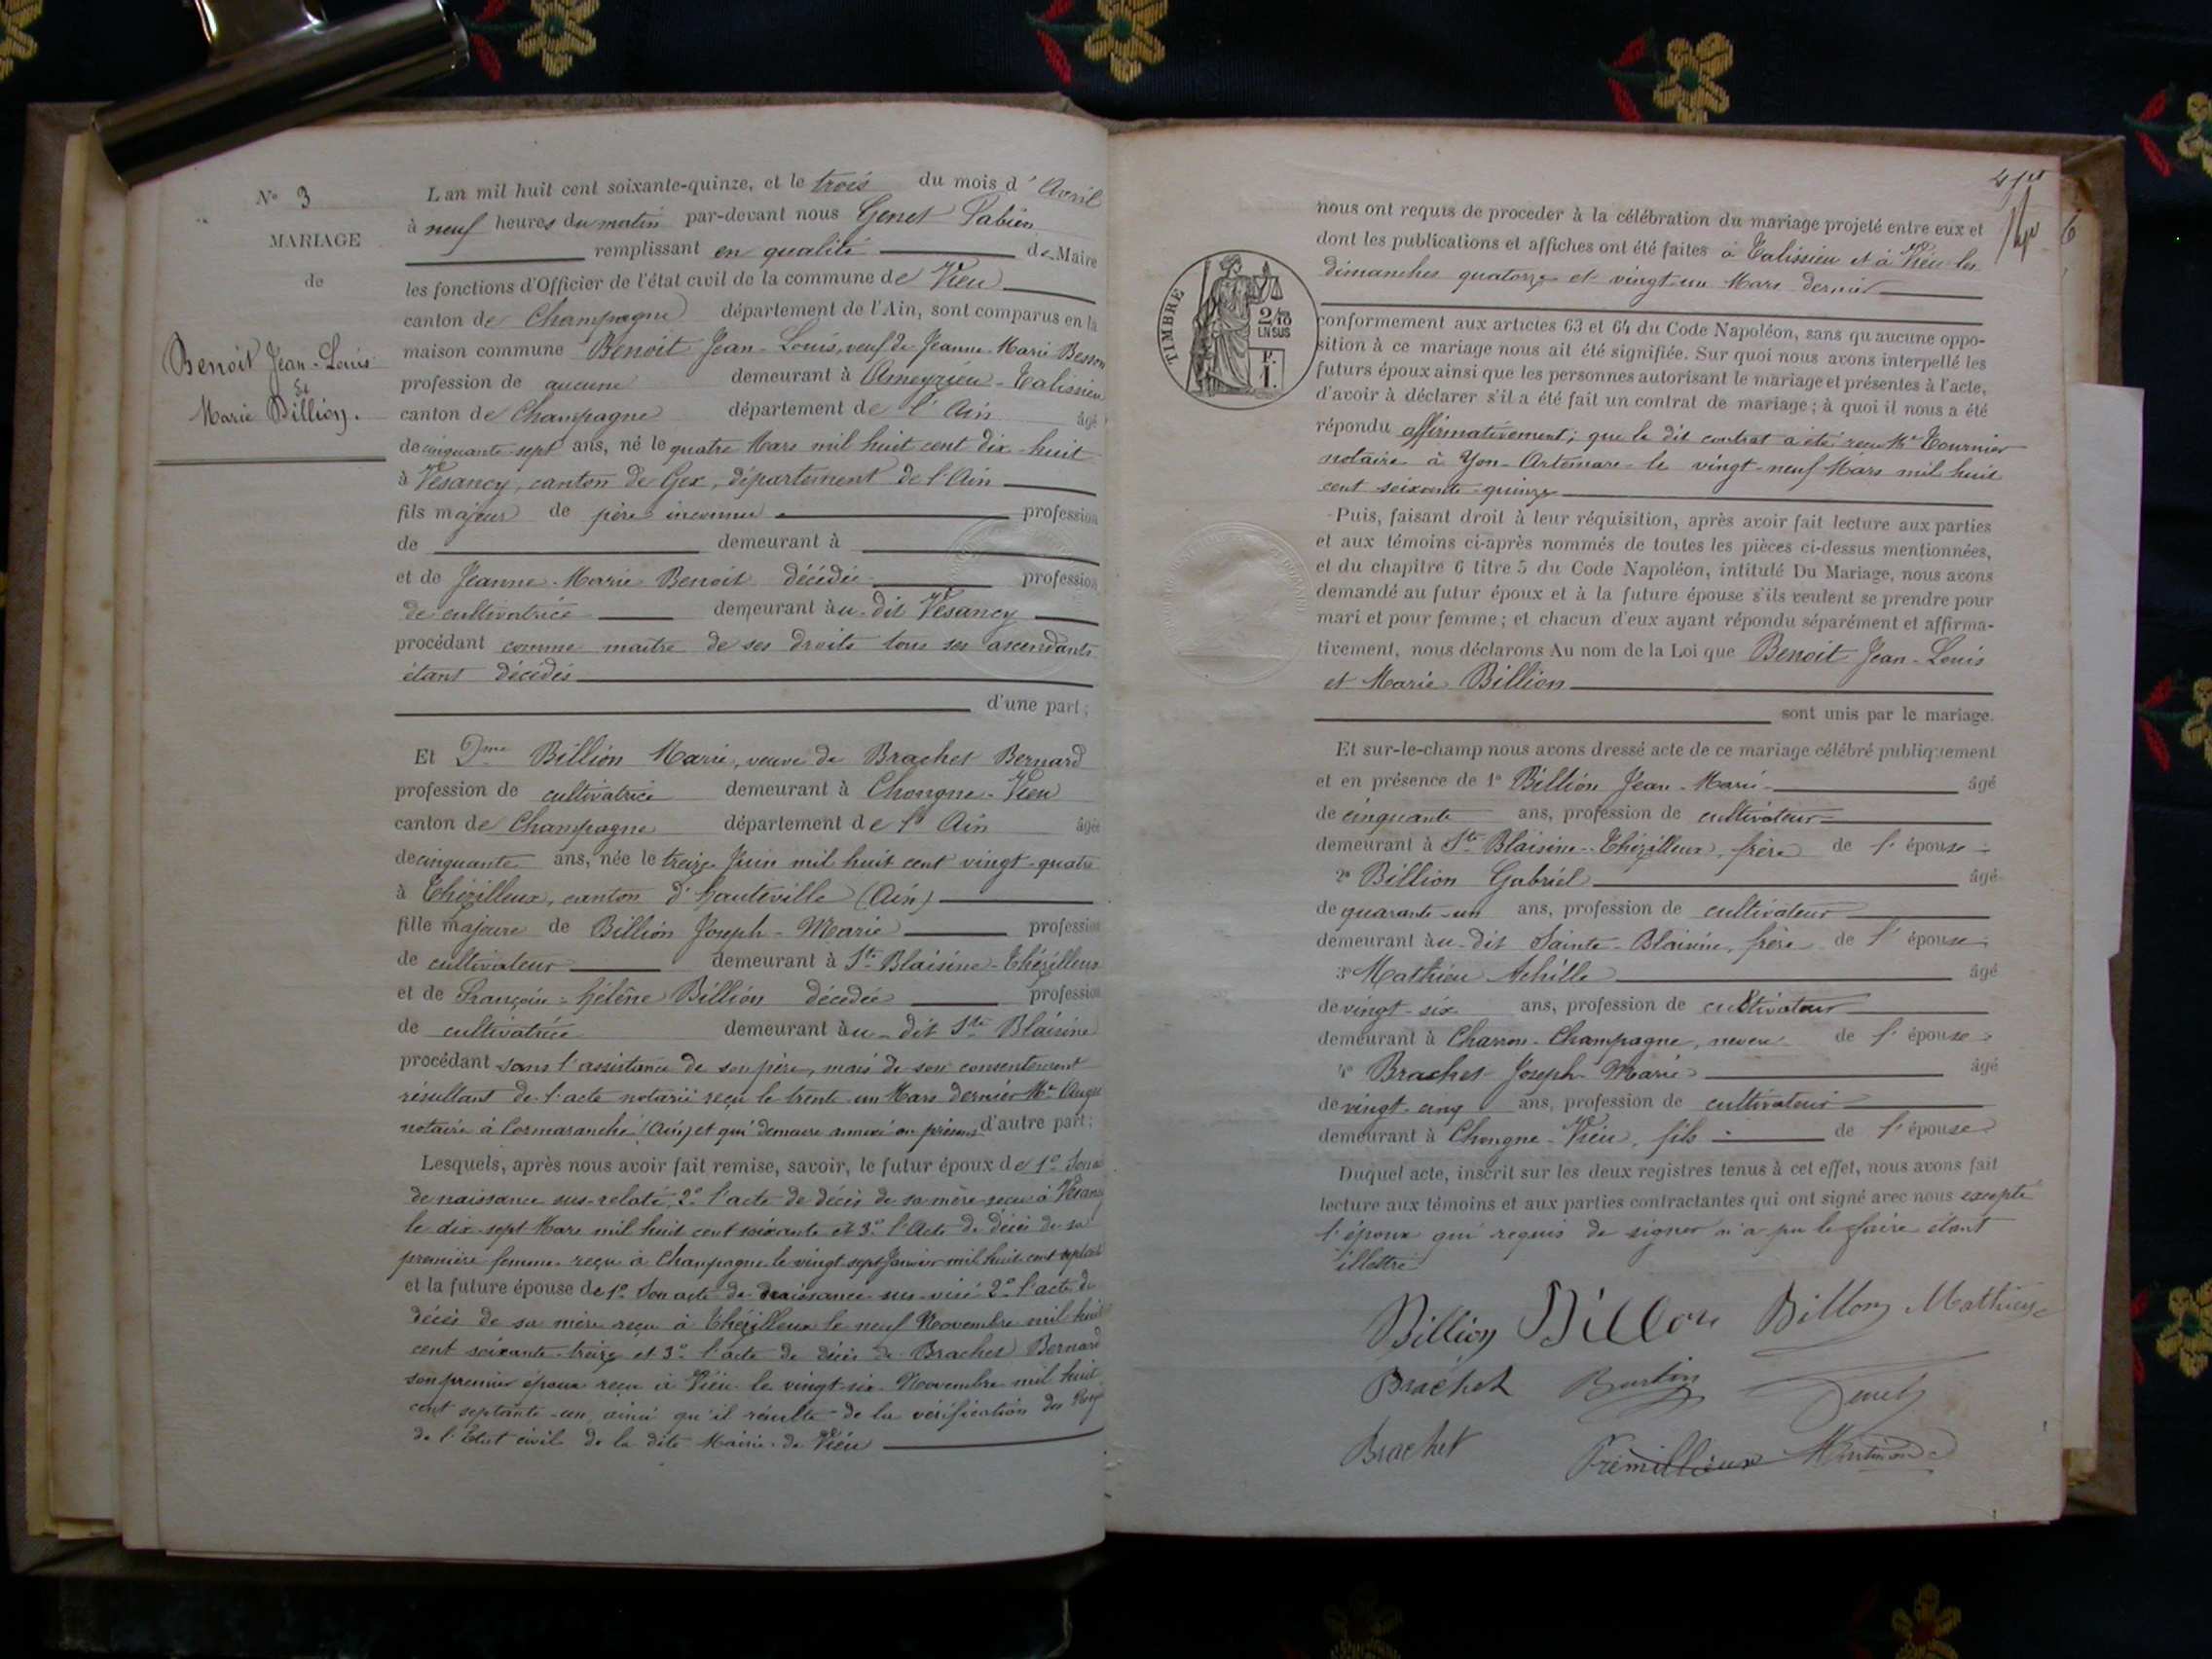 N° 3
MARIAGE
de
Benoit Jean-Louis
Et
Marie Billion.
L'an mil huit cent soixante-quinze, et le trois du mois d'Avril
à neuf heures du matin par-devant nous Genet Fabien
remplissant en qualité de Maire
les fonctions d'Officier de l'état civil de la commune de Vieu
canton de Champagne département de l'Ain, sont comparus en la
maison commune Benoit Jean-Louis, veuf de Jeanne-Marie Besson
profession de aucune demeurant à Ameyzieu-Talissieu
canton de Champagne département de l'Ain âgé
de cinquante-sept ans, né le quatre Mars mil huit cent dix-huit
à Vesancy, canton de Gex, département de l'Ain
fils majeur de père inconnu profession
de demeurant à
et de Jeanne-Marie Benoit décédée profession
de cultivatrice demeurant àu-dit Vesancy
procédant comme maître de ses droits tous ses ascendants
étant décédés
d'une part;
Et Dme Billion Marie, veuve de Brachet Bernard
profession de cultivatrice demeurant à Chongne-Vieu
canton de Champagne département de l'Ain âgée
de cinquante ans, née le treize Juin mil huit cent vingt-quatre
à Thézilleux, canton d'hauteville (Ain)
fille majeure de Billion Joseph-Marie profession
de cultivateur demeurant à Ste Blaisine-Thézilleux
et de Françoise-hélène Billion décédée profession
de cultivatrice demeurant àu-dit Ste Blaisine
procédant sans l'assistance de son père, mais de son consentement
résultant de l'acte notarié reçu le trente-un Mars dernier Me
notaire à Cormaranche (Ain) et qui demeure annexé au présent d'autre part;
Lesquels, après nous avoir fait remise, savoir, le futur époux de 1° Son
de naissance sus-relaté, 2° l'acte de décès de sa mère reçu à Vesancy
le dix-sept Mars mil huit cent soixante et 3° l'Acte de décès de sa
première femme reçu à Champagne le vingt-sept Janvier mil huit cent
et la future épouse de 1° Son acte de naissance sus-visé 2° l'acte de
décès de sa mère reçu à Thézilleux le neuf Novembre mil huit
cent soixante-treize et 3° l'acte de décès de Brachet Bernard
son premier époux reçu à Vieu le vingt-six Novembre mil huit
cent septante-un, ainsi qu'il résulte de la vérification des
de l'Etat civil de la dite Mairie de Vieu
nous ont requis de procéder à la célébration du mariage projeté entre eux et
dont les publications et affiches ont été faites à Talissieu et à Vieu les
dimanches quatorze et vingt-un Mars dernier
TIMBRE
2/10
EN SUS
conformément aux articles 63 et 64 du Code Napoléon, sans qu'aucune oppo-
sition à ce mariage nous ait été signifiée. Sur quoi nous avons interpellé les
futurs époux ainsi que les personnes autorisant le mariage et présentes à l'acte,
d'avoir à déclarer s'il a été fait un contrat de mariage; à quoi il nous a été
répondu affirmativement; que le dit contrat a été reçu Me Tournier
notaire à Yon-Artemare le vingt-neuf Mars mil huit
cent soixante-quinze
Puis, faisant droit à leur réquisition, après avoir fait lecture aux parties
et aux témoins ci-après nommés de toutes les pièces ci-dessus mentionnées,
et du chapitre 6 titre 5 du Code Napoléon, intitulé Du Mariage, nous avons
demandé au futur époux et à la future épouse s'ils veulent se prendre pour
mari et pour femme; et chacun d'eux ayant répondu séparément et affirma-
tivement, nous déclarons Au nom de la Loi que Benoit Jean-Louis
et Marie Billion
sont unis par le mariage.
Et sur-le-champ nous avons dressé acte de ce mariage célébré publiquement
et en présence de 1° Billion Jean-Marie âgé
de cinquante ans, profession de cultivateur
demeurant à Ste Blaisine-Thézilleux, frère de l'épouse
2° Billion Gabriel âgé
de quarante-un ans, profession de cultivateur
demeurant àu-dit Sainte-Blaisine, frère de l'épouse
3° Mathieu Achille âgé
de vingt-six ans, profession de cultivateur
demeurant à Charron-Champagne, neveu de l'épouse
4° Brachet Joseph-Marie âgé
de vingt-cinq ans, profession de cultivateur
demeurant à Chongne-Vieu, fils de l'épouse
Duquel acte, inscrit sur les deux registres tenus à cet effet, nous avons fait
lecture aux témoins et aux parties contractantes qui ont signé avec nous excepté
l'époux qui requis de signer n'a pu le faire étant
illettré
Billion Billon Billon Mathieu
Brachet Burtin Genet
Brachet Prémillieux